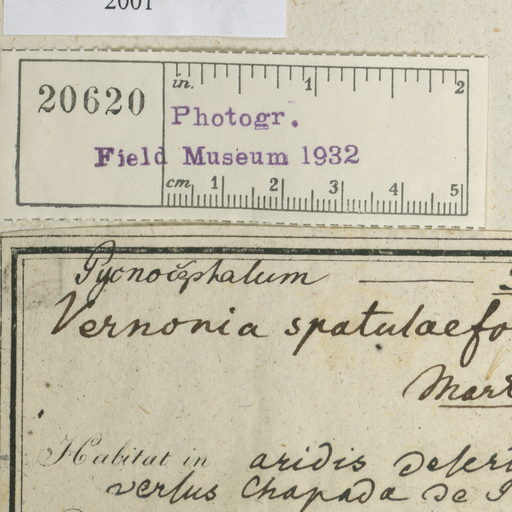 2001
20620
in. 1 2
Photogr.
Field Museum 1932
cm 1 2 3 4 5
Pycnocephalum
Vernonia spatulaefo
Mart
Habitat in aridis desert
versus Chapada de